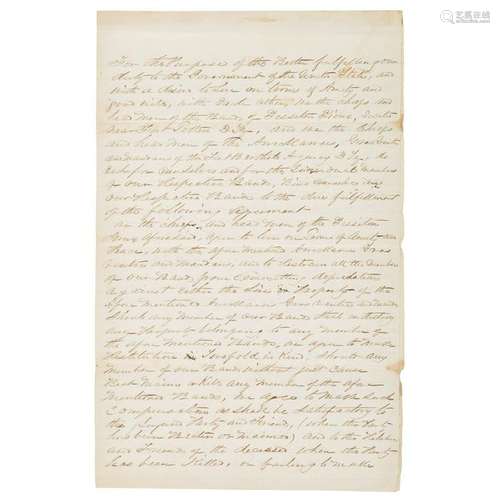 For the Purpose of the Better fulfilling our
duty to the Government of the United States, and
with a desire to live on terms of Amity and
good will, with Each other, we the chiefs and
head men of the Bands of Sisseton Sioux, located
near Fort Totten D.T., and we the Chiefs
and head men of the Arickarees, Grosventres
and Mandans of the Fort Berthold Agency D.Ty, do
each for ourselves and for the individual members
of our Respective Bands, bind ourselves and
our Respective Bands to the due fulfillment
of the following Agreement
We the chiefs and head men of the Sisseton
Sioux aforesaid, agree to live on terms of Amity and
Peace, with the afore mentioned Arickaree Gros
ventres and Mandans, and to restrain all the members
of our Band, from Committing depredations
against either the lives or Property of the
afore mentioned Arickarees Grosventres and Mandans
Should any Member of our Band steal or destroy
any Property belonging to any member of
the afore mentioned Bands, we agree to make
Restitution in twofold in kind, should any
Member of our Band without just cause
Beat Maim or Kill any member of the afore
mentioned Bands, we agree to make such
Compensation as shall be satisfactory to
the Injured Party and friends, (when the Party
has been Beaten or Maimed) and to the Relatives
and Friends of the deceased when the Party
has been Killed, or failing to make